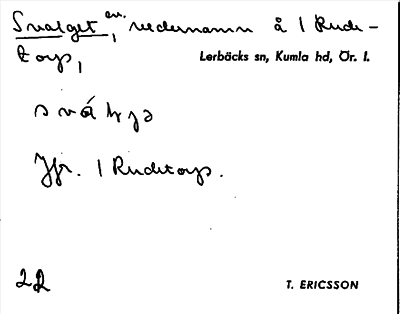 Svalget, en. vedernamn å 1 Rude-
torp, Lerbäcks sn, Kumla hd, Ör. l.
Jfr. 1 Rudetorp.
22
T. ERICSSON